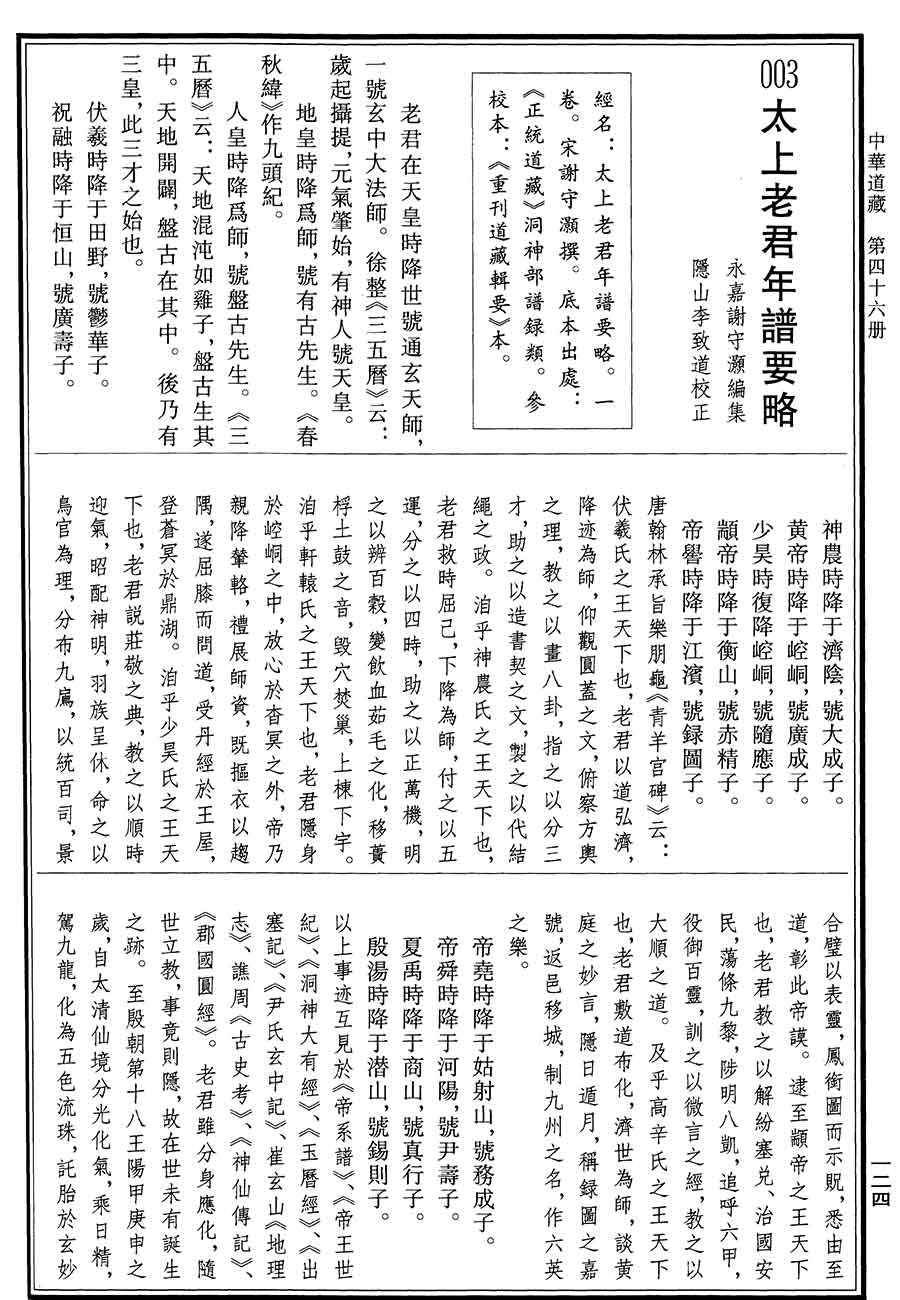 中華道藏　第四十六册
003太上老君年譜要略
永嘉謝守灝編集
隱山李致道校正
經名：太上老君年譜要略。一
卷。宋謝守灝撰。底本出處：
《正統道藏》洞神部譜録類。參
校本：《重刊道藏輯要》本。
老君在天皇時降世號通玄天師，
一號玄中大法師。徐整《三五曆》云：
歲起攝提，元氣肇始，有神人號天皇。
地皇時降爲師，號有古先生。《春
秋緯》作九頭紀。
人皇時降爲師，號盤古先生。《三
五曆》云：天地混沌如雞子，盤古生其
中。天地開闢，盤古在其中。後乃有
三皇，此三才之始也。
伏羲時降于田野，號鬱華子。
祝融時降于恒山，號廣壽子。
神農時降于濟陰，號大成子。
黄帝時降于崆峒，號廣成子。
少昊時復降崆峒，號隨應子。
顓帝時降于衡山，號赤精子。
帝嚳時降于江濱，號録圖子。
唐翰林承旨樂朋龜《青羊宫碑》云：
伏羲氏之王天下也，老君以道弘濟，
降迹為師，仰觀圓蓋之文，俯察方輿
之理，教之以畫八卦，指之以分三
才，助之以造書契之文，製之以代結
繩之政。洎乎神農氏之王天下也，
老君救時屈己，下降為師，付之以五
運，分之以四時，助之以正萬機，明
之以辨百穀，變飲血茹毛之化，移蕢
桴土鼓之音，毁穴焚巢，上棟下宇。
洎乎軒轅氏之王天下也，老君隱身
於崆峒之中，放心於杳冥之外，帝乃
親降輦輅，禮展師資，既摳衣以趨
隅，遂屈膝而問道，受丹經於王屋，
登蒼冥於鼎湖。洎乎少昊氏之王天
下也，老君説莊敬之典，教之以順時
迎氣，昭配神明，羽族呈休，命之以
鳥官為理，分布九鳸，以統百司，景
合璧以表靈，鳳銜圖而示貺，悉由至
道，彰此帝謨。逮至顓帝之王天下
也，老君教之以解紛塞兑、治國安
民，蕩條九黎，陟明八凱，追呼六甲，
役御百靈，訓之以微言之經，教之以
大順之道。及乎高辛氏之王天下
也，老君敷道布化，濟世為師，談黄
庭之妙言，隱日遁月，稱録圖之嘉
號，返邑移城，制九州之名，作六英
之樂。
帝堯時降于姑射山，號務成子。
帝舜時降于河陽，號尹壽子。
夏禹時降于商山，號真行子。
殷湯時降于潜山，號錫則子。
以上事迹互見於《帝系譜》、《帝王世
紀》、《洞神大有經》、《玉曆經》、《出
塞記》、《尹氏玄中記》、崔玄山《地理
志》、譙周《古史考》、《神仙傳記》、
《郡國圓經》。老君雖分身應化，隨
世立教，事竟則隱，故在世未有誕生
之跡。至殷朝第十八王陽甲庚申之
歲，自太清仙境分光化氣，乘日精，
駕九龍，化為五色流珠，託胎於玄妙
一二四